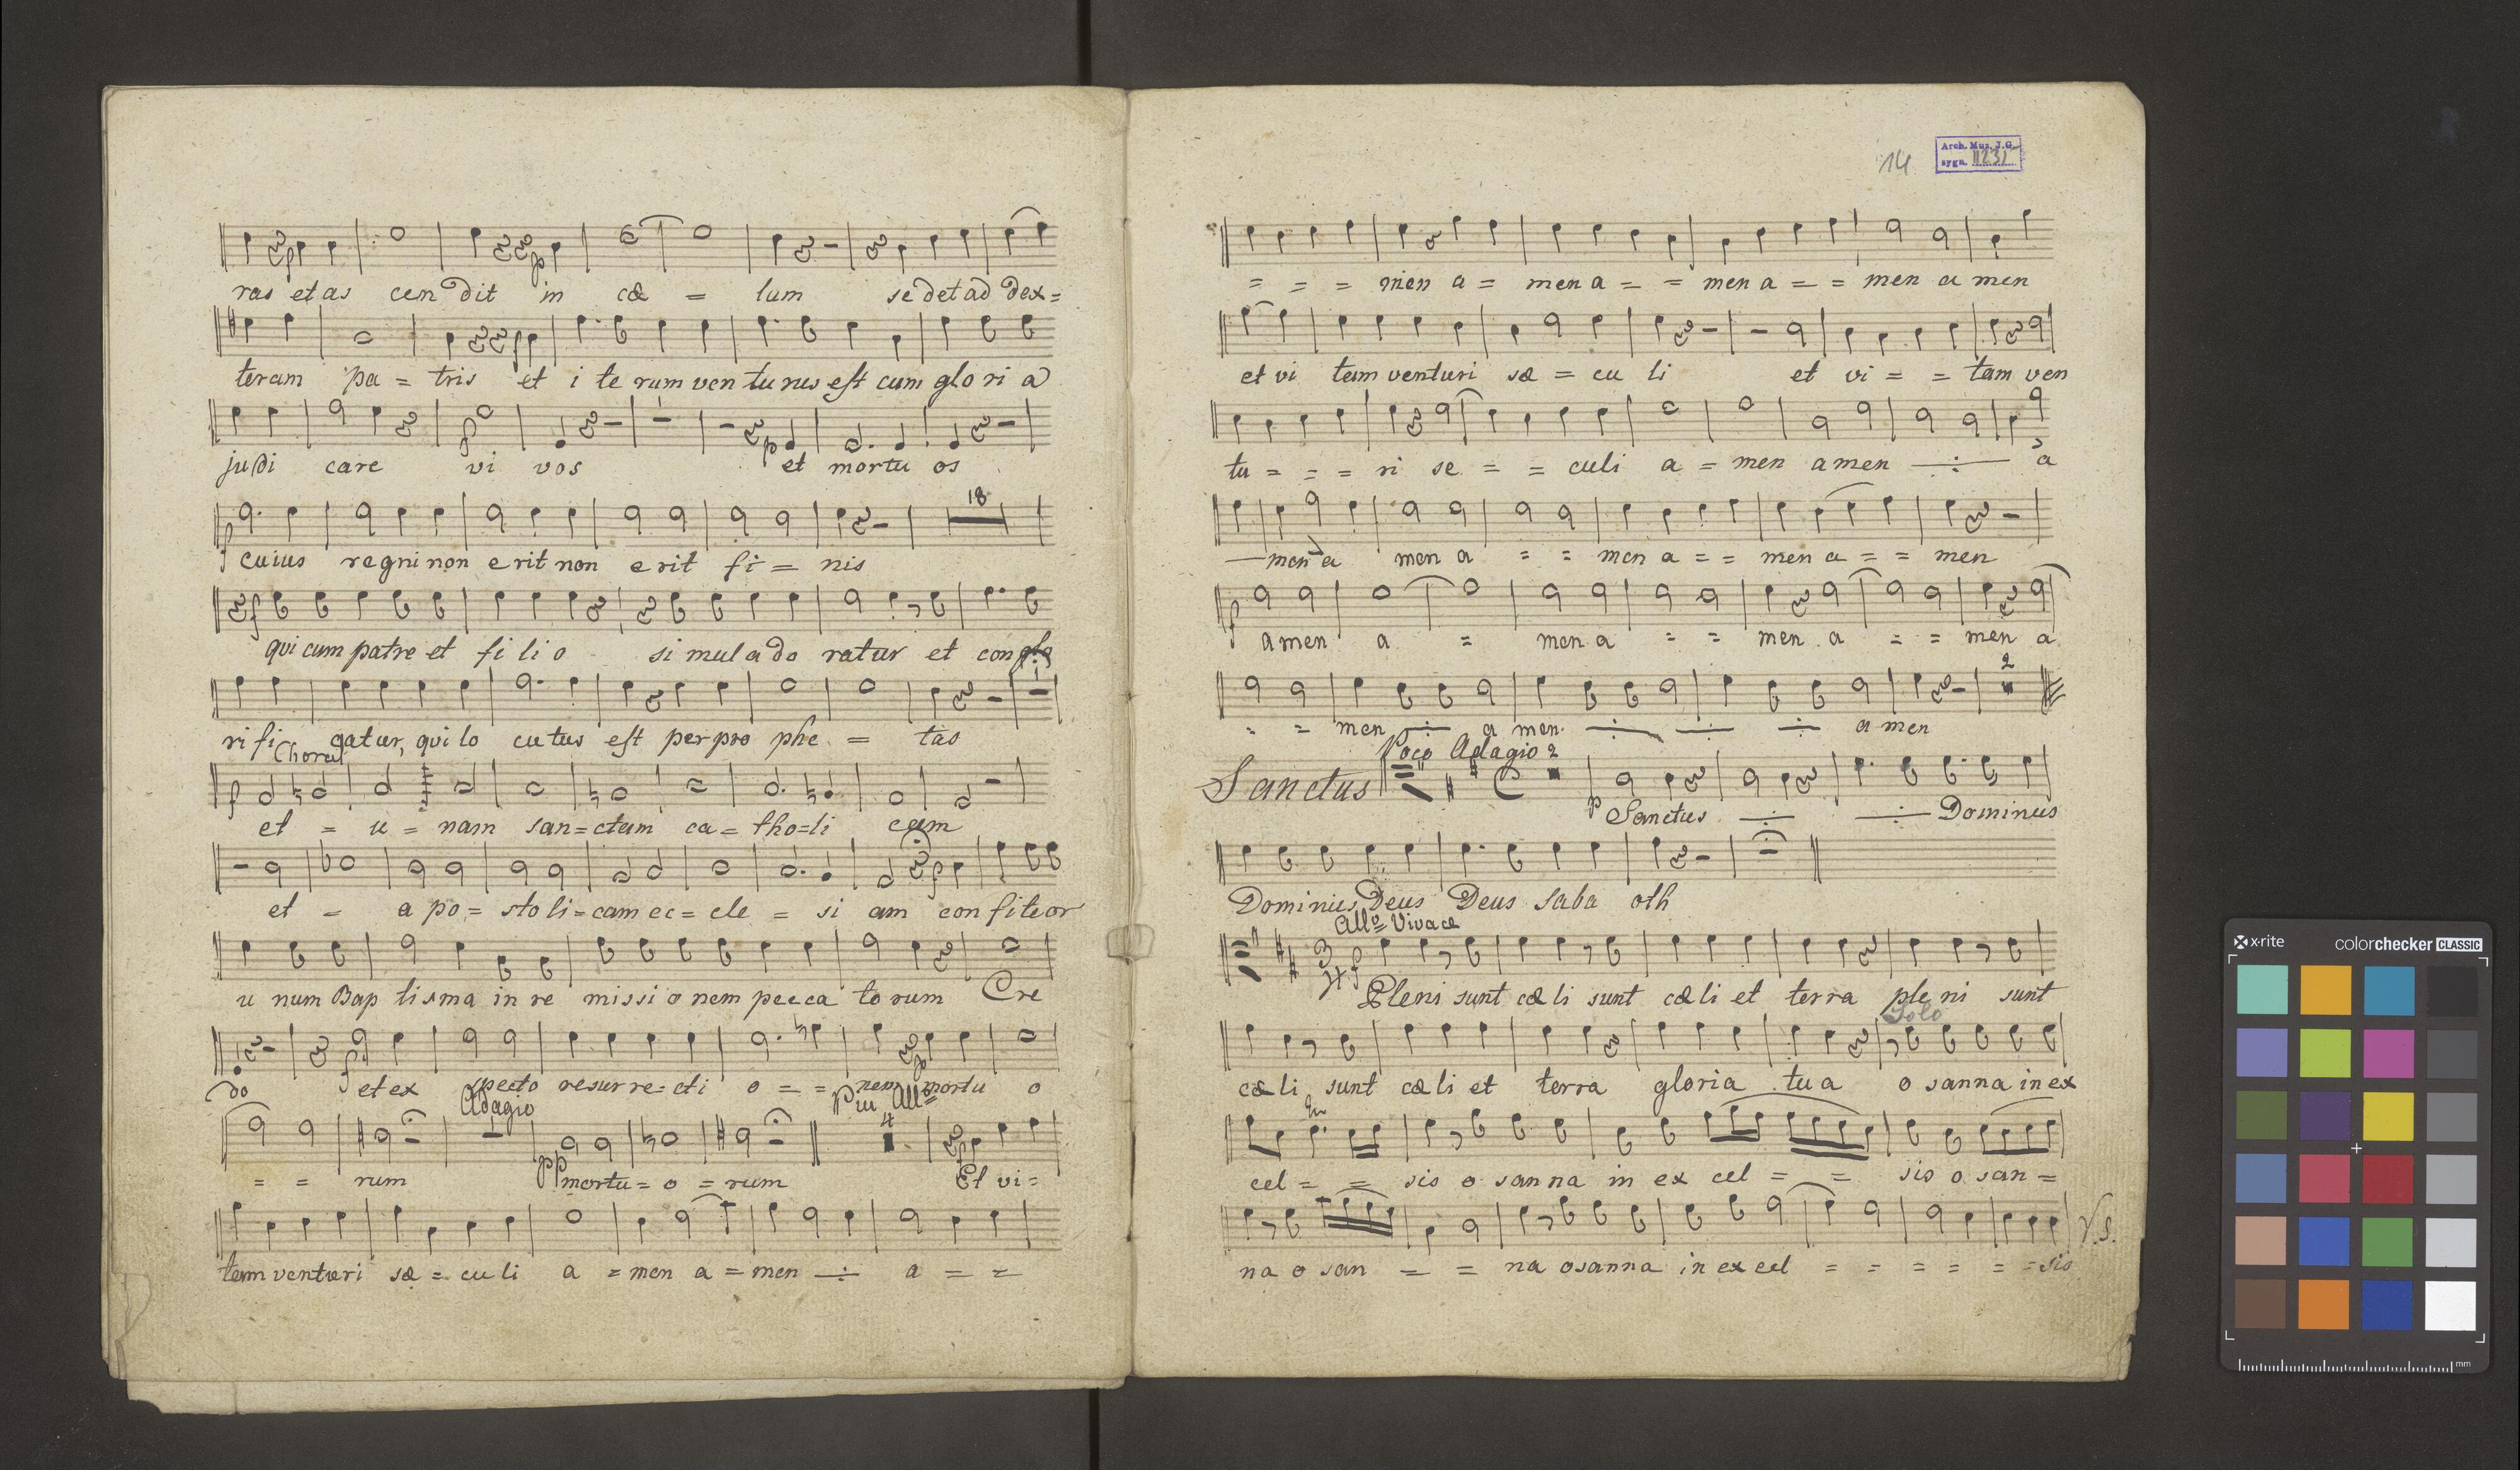 ras et as cen dit in cœ = lum se det ad dex=
teram pa = tris et i te rum ven tu rus est cum glo ri a
judi care vi vos et mortu os
18
cuius regni non e rit non e rit fi = nis
qui cum patre et fi li o si mul a do ratur et con glo
ri fi catur, qui lo cutus est per pro phe = tas
Choral
et = u = nam san=ctam ca = tho=li cam
et = a po = sto li = cam ec = cle = si am con fiteor
u num Bap tisma in re missi o nem pecca to rum Cre
do et ex specto resurre=cti o = = nem mortu o
Adagio Piu All⁰ 4
= = rum pp mortu = o = rum Et vi =
tam venturi sæ = cu li a = men a = men ÷ a = =
14
Arch. Muz. J.G.
sygn. II 231
= = = men a = men a = = men a = = men a men
et vi tam venturi sæ = cu li et vi = = tam ven
tu = = = ri se = = culi a = men amen ÷ a
men a men a = = men a = = men a = = men
amen a = men a = = men a = = men a
2
= = men ÷ a men ÷ ÷ ÷ a men
Poco Adagio 2
Sanctus p Sanctus ÷ ÷ Dominus
Dominus Deus Deus Saba oth
All⁰ Vivace
3
4 f
Pleni sunt cœ li sunt cœ li et terra ple ni sunt
Solo
cœ li sunt cœ li et terra gloria tu a o sanna in ex
cel = = sis o san na in ex cel = = sis o san =
na o san = = na osanna in ex cel = = = = = = sis
V.S.
x-rite colorchecker CLASSIC
mm